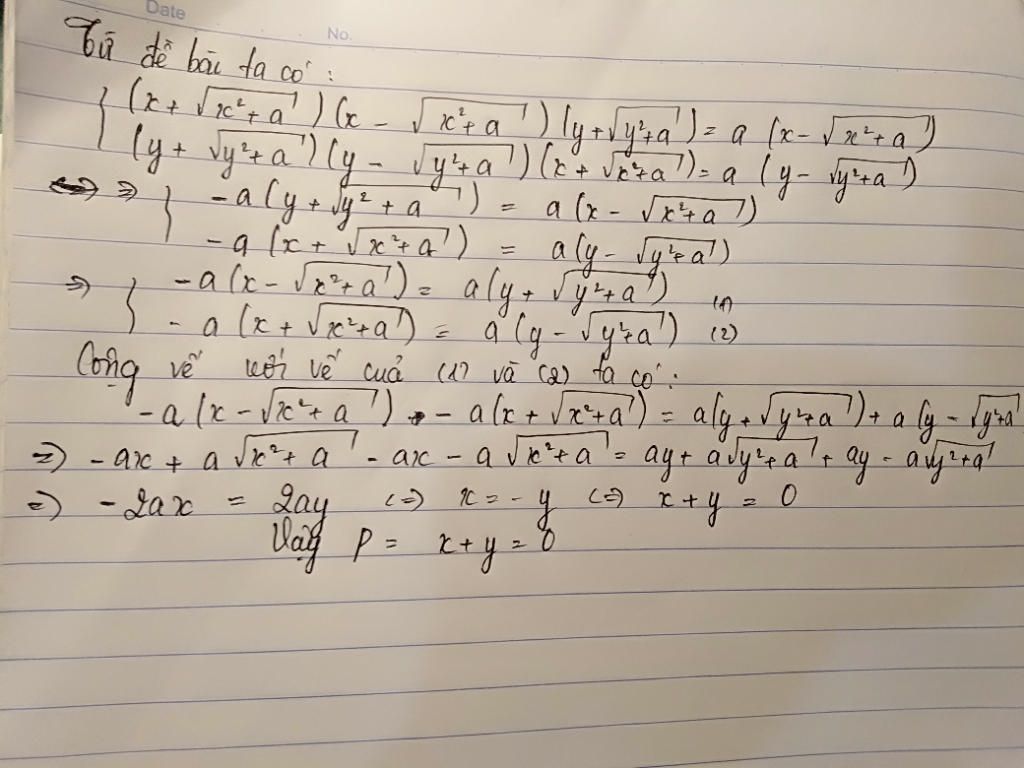 Date
No.
Từ đề bài ta có:
{ (x + √(x²+a))(x - √(x²+a))(y + √(y²+a)) = a (x - √(x²+a))
(y + √(y²+a))(y - √(y²+a))(x + √(x²+a)) = a (y - √(y²+a))
⇒ { -a(y + √(y²+a)) = a(x - √(x²+a))
-a(x + √(x²+a)) = a(y - √(y²+a))
⇒ { -a(x - √(x²+a)) = a(y + √(y²+a)) (1)
-a(x + √(x²+a)) = a(y - √(y²+a)) (2)
Cộng vế với vế cuả (1) và (2) ta có:
-a(x - √(x²+a)) - a(x + √(x²+a)) = a(y + √(y²+a)) + a(y - √(y²+a)
⇒ -ax + a√(x²+a) - ax - a√(x²+a) = ay + a√(y²+a) + ay - a√(y²+a)
⇒ -2ax = 2ay ⇔ x = -y ⇔ x + y = 0
Vậy P = x + y = 0